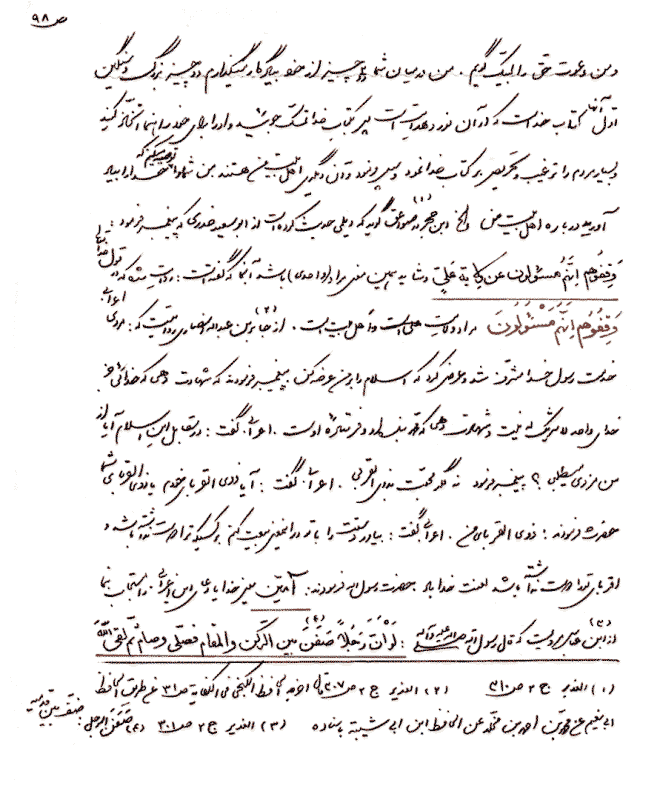 ص ۹۸
و من دعوت حق را لبیک گویم. من در میان شما دو چیز از خود بیادگار میگذارم دو چیز بزرگ و سنگین
اول آنها کتاب خداست که در آن نور و هدایت است پس بکتاب خدا چنگ جوئید و او را برای خود راهنما اتخاذ کنید
و بسیار مردم را ترغیب و تحریص بر کتاب خدا نمود و سپس فرمود و آن دیگری اهل بیت من هستند من شما را توصیه میکنم که خدا را بیاد
آورید درباره اهل بیت من و ابن حجر در صواعق گوید که دیلمی حدیث کرده است از ابو سعید خدری که پیغمبر فرمود:
وَقِفُوهُم اِنَّهُم مَسئولون عن ولایة علیّ و شاید همین معنی مراد (واحدی) باشد آنجا که گفته است: روایت شده که در قول خدایتعالی
وَقِفُوهُم اِنَّهُم مَسْئُولُونَ مراد ولایت علی است و اهل بیت است. از جابر بن عبدالله انصاری روایت است که: مردی اعرابی
خدمت رسول خدا مشرف شد و عرض کرد که اسلام را بر من عرضه کن. پیغمبر فرمودند که شهادت دهی که خدائی جز
خدای واحد لا شریک له نیست و شهادت دهی که محمد بنده او و فرستاده اوست. اعرابی گفت: در مقابل این اسلام آیا از
من مزدی میطلبی؟ پیغمبر فرمود نه مگر محبت بذوی القربی. اعرابی گفت: آیا ذوی القربای خودم یا ذوی القربای شما
حضرت فرمودند: ذوی القربای من. اعرابی گفت: بیاور دستت را با تو در اینمعنی بیعت کنم بر کسیکه ترا دوست نداشته باشد و
اقربای تو را دوست نداشته باشد لعنت خدا باد. حضرت رسول الله فرمودند: آمین یعنی خدایا دعای این اعرابی را مستجاب نما
(۳) از ابن عباس مرویست که قال رسول الله صلی الله علیه و آله: لَو اَنَّ رَجُلاً صَفَنَ (۴) بین الرکن والمقام فصلّی و صام ثم لقی الله
(۱) الغدیر ج ۲ ص ۳۱۰ (۲) الغدیر ج ۲ ص ۳۰۷ قال اخرجه الحافظ الکنجی فی الکفایة ص ۳۱ عن طریق الحافظ
ابی نعیم عن محمد بن احمد بن مخلد عن الحافظ ابن ابی شیبة باسناده (۳) الغدیر ج ۲ ص ۳۰۱ (۴) صَفَنَ الرجل: صف بین قدمیه